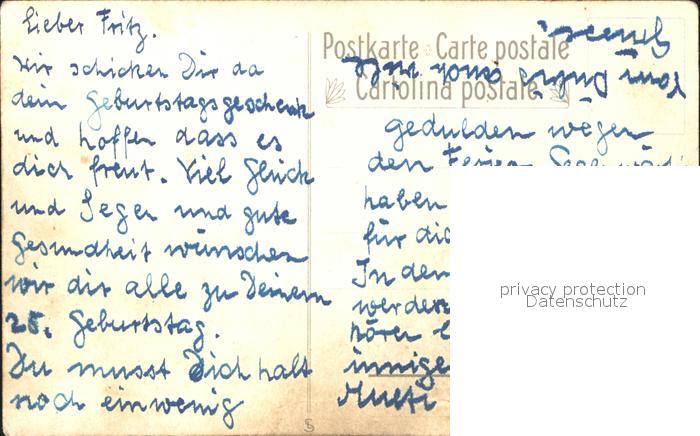 Lieber Fritz.
Wir schicken Dir da
dein Geburtstagsgeschenk
und hoffen dass es
dich freut. Viel Glück
und Segen und gute
Gesundheit wünschen
wir dir alle zu Deinem
25. Geburtstag.
Du musst Dich halt
noch ein wenig
Postkarte Carte postale
Cartolina postale
gedulden wegen
den
haben
für
In den
werden
hören
innige
Mutti
privacy protection
Datenschutz